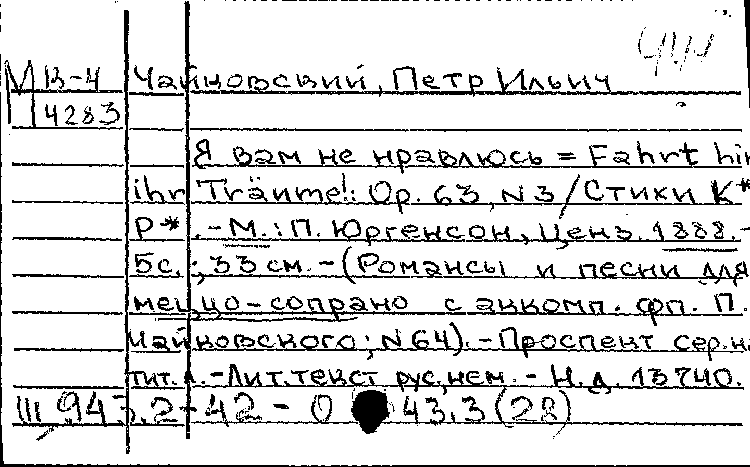 444
М В-4 Чайковский, Петр Ильич
П 4283
Я вам не нравлюсь = Fahrt hin
ihr Träume!: Ор. 63, N3 / Стихи К*
Р*. - М.: П. Юргенсон, Ценз. 1888. -
5с.; 33 см. - (Романсы и песни для
меццо-сопрано с аккомп. фп. П.
Чайковского; N64). - Проспект сер. на
тит. л. - Лит. текст рус., нем. - Н.д. 13740.
Ш 943.2-42-0 43.3(28)